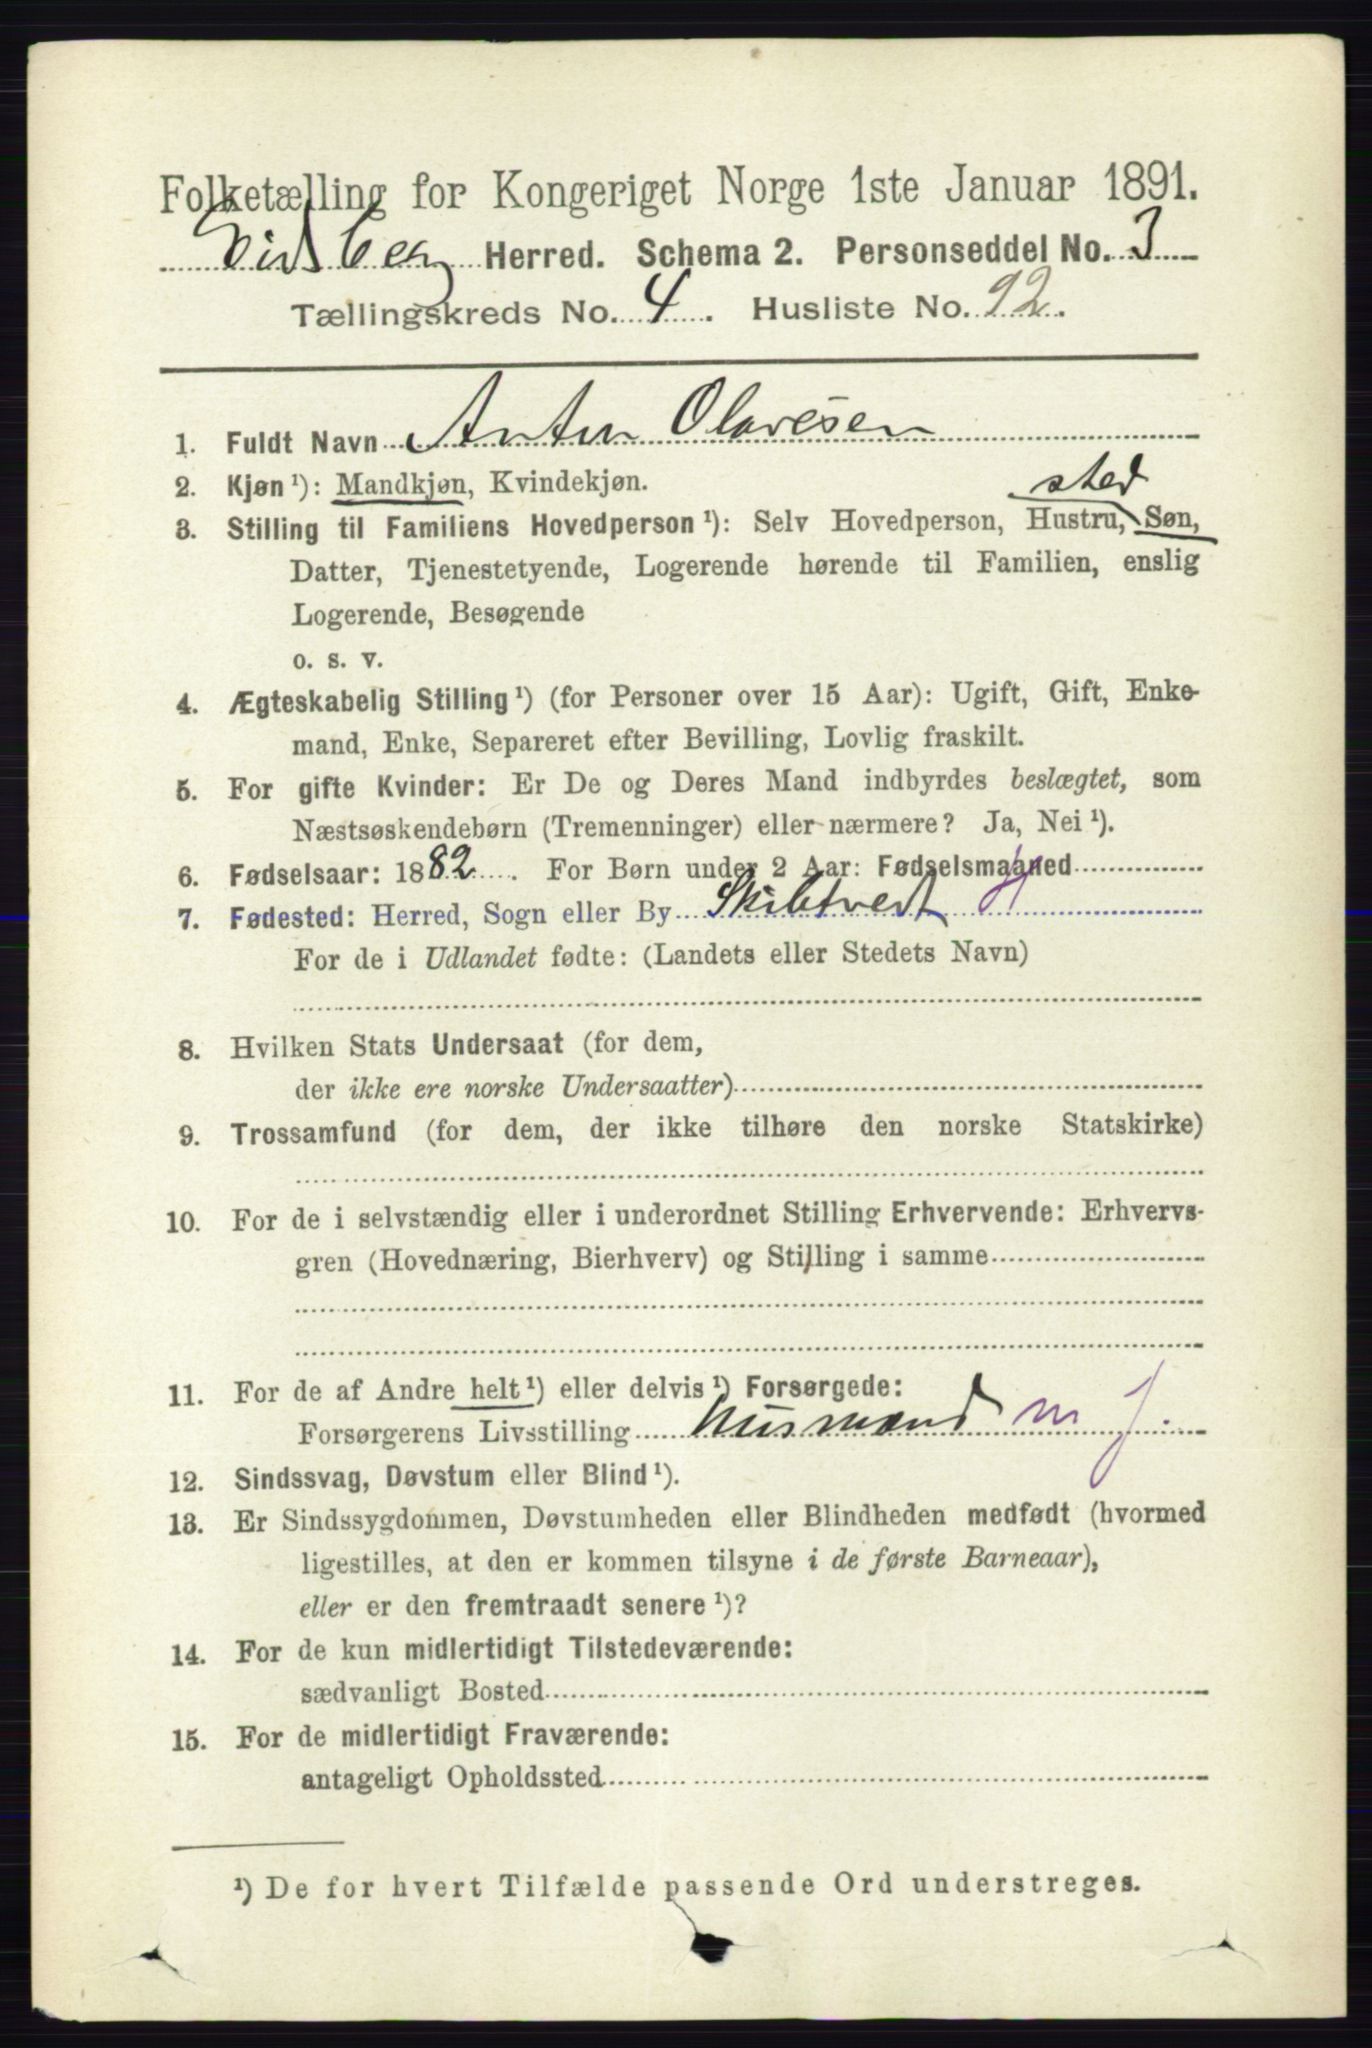 Folketælling for Kongeriget Norge 1ste Januar 1891.
Eidsberg Herred. Schema 2. Personseddel No. 3
Tællingskreds No. 4. Husliste No. 92.
1. Fuldt Navn Anton Olavesen
sted
2. Kjøn ¹): Mandkjøn, Kvindekjøn.
3. Stilling til Familiens Hovedperson ¹): Selv Hovedperson, Hustru, Søn,
Datter, Tjenestetyende, Logerende hørende til Familien, enslig
Logerende, Besøgende
o. s. v.
4. Ægteskabelig Stilling ¹) (for Personer over 15 Aar): Ugift, Gift, Enke-
mand, Enke, Separeret efter Bevilling, Lovlig fraskilt.
5. For gifte Kvinder: Er De og Deres Mand indbyrdes beslægtet, som
Næstsøskendebørn (Tremenninger) eller nærmere? Ja, Nei ¹).
6. Fødselsaar: 1882. For Børn under 2 Aar: Fødselsmaaned
7. Fødested: Herred, Sogn eller By Skibtvedt H
For de i Udlandet fødte: (Landets eller Stedets Navn)
8. Hvilken Stats Undersaat (for dem,
der ikke ere norske Undersaatter)
9. Trossamfund (for dem, der ikke tilhøre den norske Statskirke)
10. For de i selvstændig eller i underordnet Stilling Erhvervende: Erhvervs-
gren (Hovednæring, Bierhverv) og Stilling i samme
11. For de af Andre helt ¹) eller delvis ¹) Forsørgede:
Forsørgerens Livsstilling Husmand m J.
12. Sindssvag, Døvstum eller Blind ¹).
13. Er Sindssygdommen, Døvstumheden eller Blindheden medfødt (hvormed
ligestilles, at den er kommen tilsyne i de første Barneaar),
eller er den fremtraadt senere ¹)?
14. For de kun midlertidigt Tilstedeværende:
sædvanligt Bosted
15. For de midlertidigt Fraværende:
antageligt Opholdssted
¹) De for hvert Tilfælde passende Ord understreges.